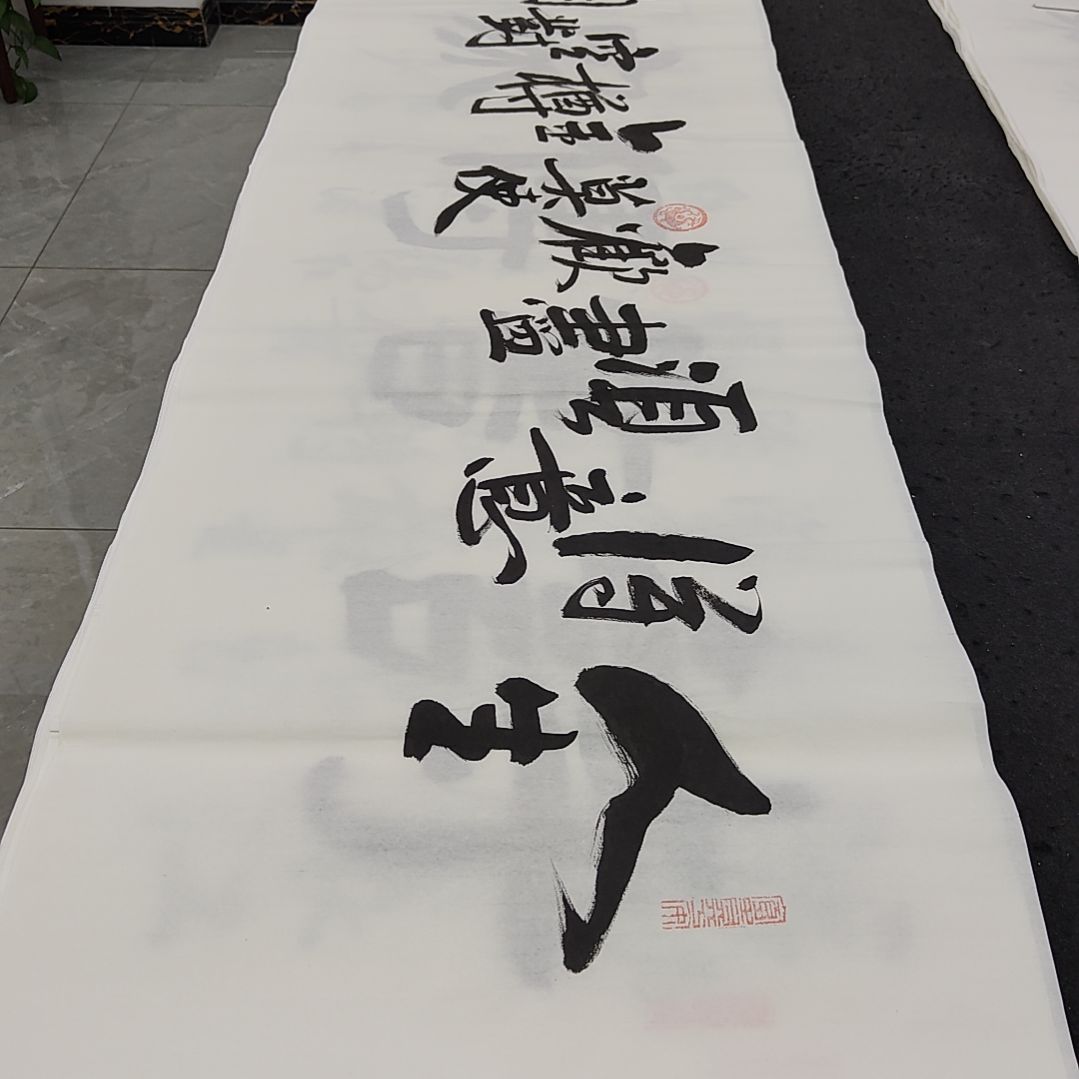 人生
得意
須盡
歡
莫使
金樽
空對